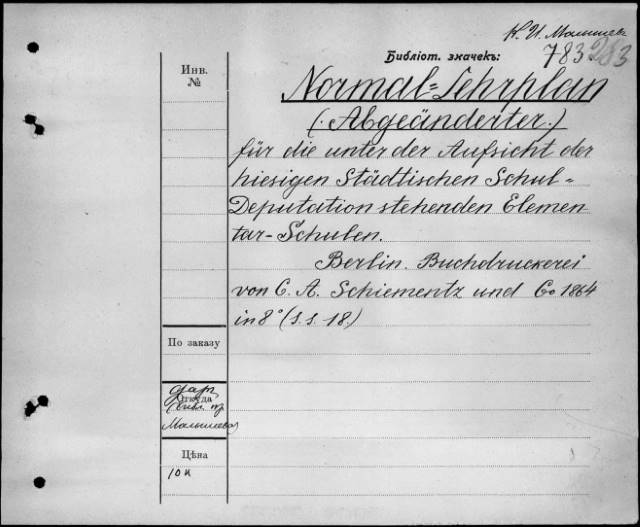 К. И. Малышевъ
Библіот. значекъ: 783 283
Инв.
№
Normal=Lehrplan
(. Abgeänderter.)
für die unter der Aufsicht der
hiesigen Städtischen Schul=
Deputation stehenden Elemen
tar-Schulen.
Berlin. Buchdruckerei
von C. A. Schiementz und Co 1864
in 8° (s. s. 18.)
По заказу
Откуда
даръ
Малышева)
Цѣна
10 к